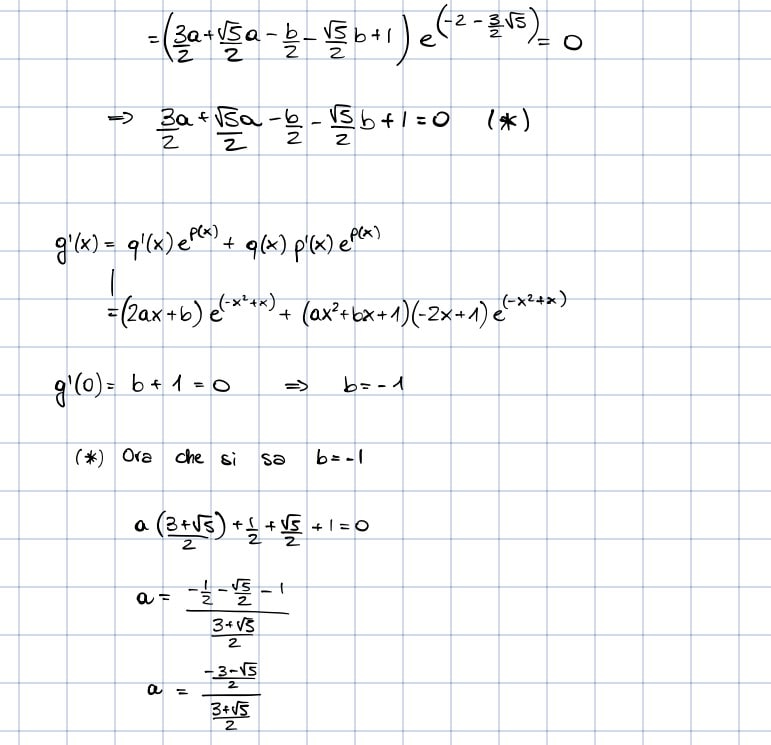 =(3a/2+√5/2a-b/2-√5/2b+1)e^(-2-3/2√5)=0
⇒ 3a/2+√5a/2-b/2-√5/2b+1=0 (*)
g'(x)= q'(x)e^p(x)+ q(x)p'(x)e^p(x)
=(2ax+b)e^(-x²+x)+(ax²+bx+1)(-2x+1)e^(-x²+x)
g'(0)= b+1=0 ⇒ b=-1
(*) Ora che si sa b=-1
a(3+√5/2)+1/2+√5/2+1=0
a= (-1/2-√5/2-1)/(3+√5/2)
a = (-3-√5/2)/(3+√5/2)